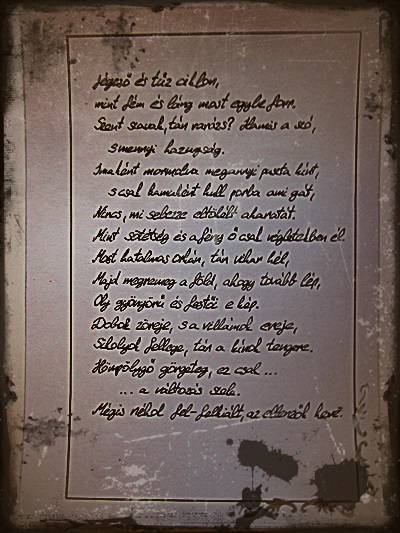 Jégeső és tűz ciklon,
mint fém és láng most egybe forr.
Szent szavak, tán varázs? Hamis a szó,
s mennyi hazugság.
Imaként mormolva megannyi puszta kínt,
s csak hamuként hull porba ami gát,
Nincs, mi sebezze eltökélt akaratát.
Mint sötétség és a fény ő csak végletekben él.
Most hatalmas orkán, tán vihar kél,
Majd megremeg a föld, ahogy tovább lép,
Oly gyönyörű és festői e kép.
Dobok zöreje, s a villámok ereje,
Sikolyok fellege, tán a kínok tengere.
Hömpölygő görgeteg, ez csak ...
... a változás szele.
Mégis néhol fel-felkiált, az ellenzők